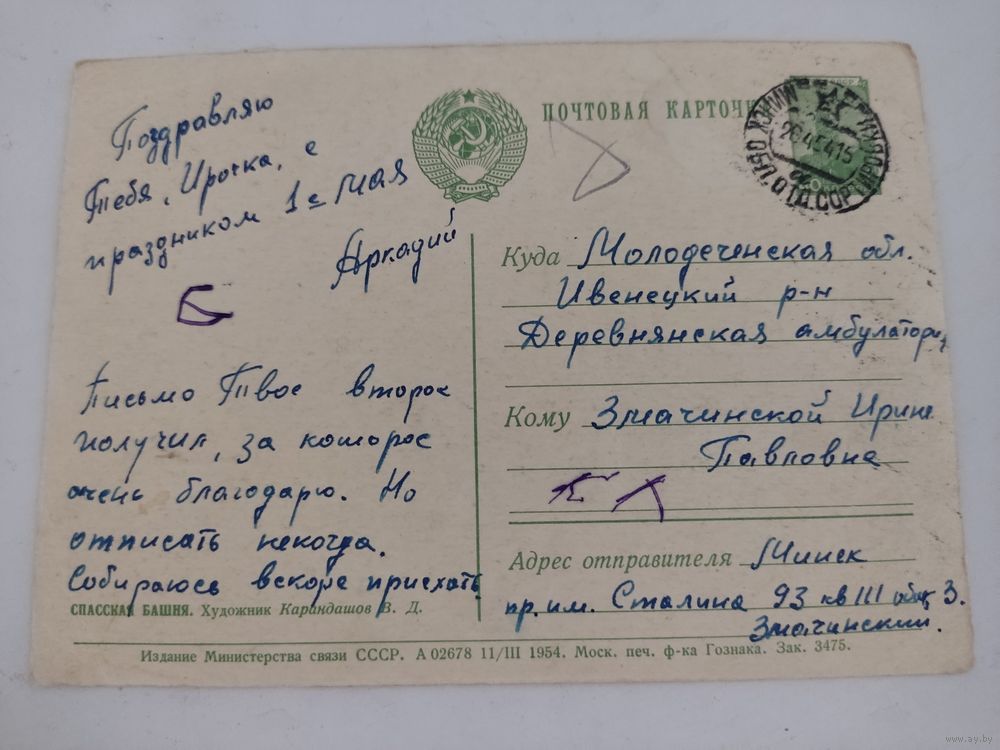 Поздравляю
Тебя, Ирочка, с
праздником 1е мая
Аркадий
Письмо Твое второе
получил, за которое
очень благодарю. Но
отписать некогда.
Собираюсь вскоре приехать.
СПАССКАЯ БАШНЯ. Художник Карандашов В. Д.
ПОЧТОВАЯ КАРТОЧК
МИНСК
2645415
ОБЛ. ОТД. СОРТИРОВКИ
Куда Молодеченская обл.
Ивенецкий р-н
Деревнянская амбулатория
Кому Змачинской Ирине
Павловне
Адрес отправителя Минск
пр. им. Сталина 93 кв III общ 3.
Змачинский.
Издание Министерства связи СССР. А 02678 11/III 1954. Моск. печ. ф-ка Гознака. Зак. 3475.
www.ay.by